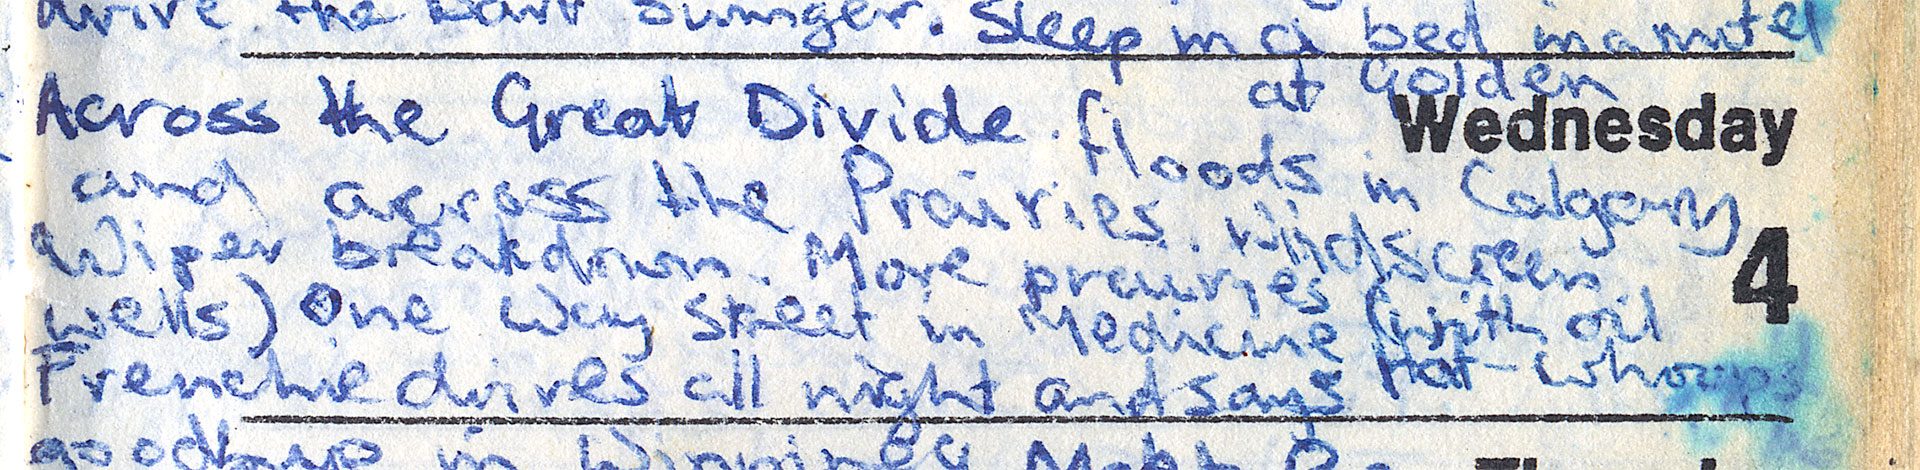 drive the Dart Swinger. Sleep in a bed in a motel
at Golden
Across the Great Divide. floods in Calgary
Wednesday
and across the Prairies. Windscreen
4
Wiper breakdown. More prairies (with oil
wells) One Way Street in Medicine Hat - whoops
Frenchie drives all night and says
goodbye in Winnipeg